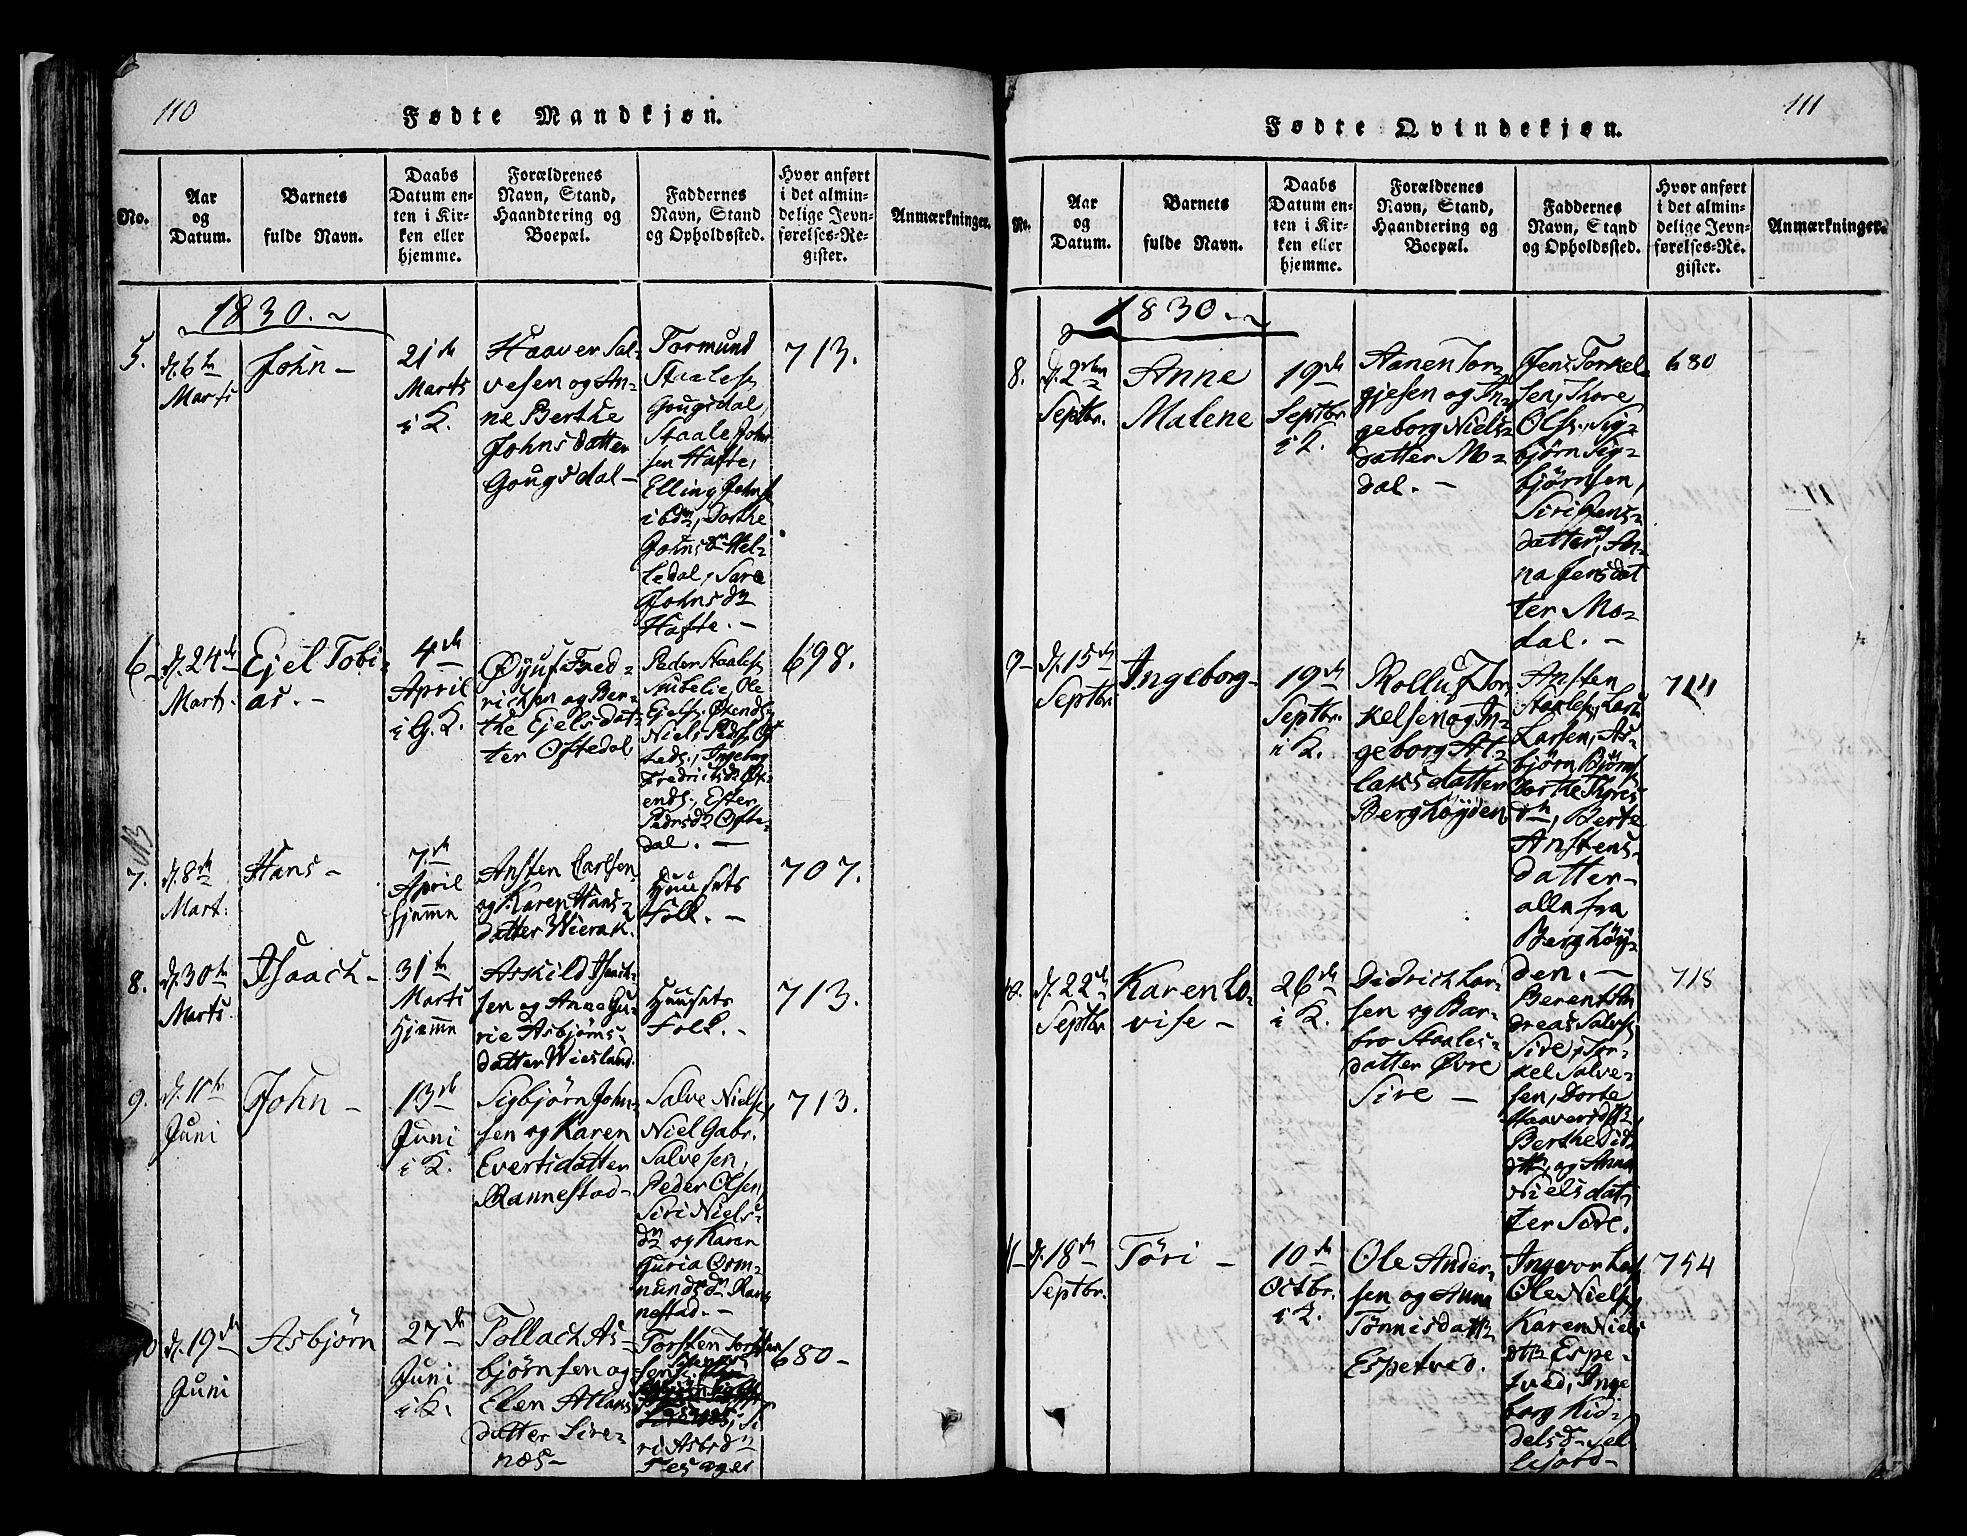 110
Fødte Mandkjøn.
No.
Aar
og
Datum.
Barnets
fulde Navn.
Daabs
Datum en-
ten i Kir-
ken eller
hjemme.
Forældrenes
Navn, Stand,
Haandtering og
Boepæl.
Faddernes
Navn, Stand
og Opholdssted.
Hvor anført
i det almin-
delige Jevn-
førelses-Re-
gister.
Anmærkninger.
1830.
5.
d. 6te
Marts
John
21de
Marts
i K.
Haaver Sal-
vesen og An-
ne Berthe
Johnsdatter
Gougsdal
Tormund
Staales.
Gougsdal,
Staale John-
sen Hafte,
Elling Johns.
ibdm, Dorthe
Johnsdr. Hel-
ledal, Sare
Johnsdr.
Hafte.
713.
6.
d. 24de
Marts.
Ejel Tobi-
as.
4de
April
i G. K.
Øyuf Fred-
richsen og Ber-
the Ejelsdat-
ter Oftedal
Peder Staales.
Ole
Ejels.
Niels
Ingeborg
Ester
Pedrsdr. Ofte-
dal.
698.
7.
d. 8de
Mart.
Hans
7de
April
hjemme
Ansten Carlsen
og Karen Hans-
datter Wierak.
Huusets
Folk.
707.
8.
d. 30te
Marts.
Isaach
31te
Marts
hjemme
Askild Isaach-
sen og Anne Gu-
rie Asbjørns-
datter Wiesland.
Huusets
Folk.
713.
9.
d. 11te
Juni
John
13de
Juni
i K.
Sigbjörn John-
sen og Karen
Evertsdatter
Rannestad
Salve Niels.,
Niel Gabr.
Salvesen,
Peder Olsen,
Siri Niels-
dr. og Karen
Guria Osm-
undsdr. Ran-
nestad.
713.
10
d. 19de
Juni
Asbjørn
27de
Juni
i K.
Tollach As-
bjørnsen og
Elen Atlaks-
datter Sire-
næs
Torsten Torsten-
sen
ri Asbrdr.
680
111
Fødte Qvindekjøn.
No.
Aar
og
Datum.
Barnets
fulde Navn.
Daabs
Datum en-
ten i Kir-
ken eller
hjemme.
Forældrenes
Navn, Stand,
Haandtering og
Boepæl.
Faddernes
Navn, Stand
og Opholdssted.
Hvor anført
i det almin-
delige Jevn-
førelses-Re-
gister.
Anmærkninger.
1830.
8.
d. 2den
Septbr.
Anne
Malene
19de
Septbr.
i K.
Aanen Tor-
gjesen og In-
geborg Niels-
datter Mo-
dal.
Jens Torkel-
sen, Thore
Ols., Sig-
björn Sig-
bjørnsen,
Siri Jens-
datter, An-
na Jensdat
ter Mo-
dal.
680
9
d. 15de
Septbr.
Ingeborg
19de
Septbr.
i K.
Rolluf Tor-
kelsen og In-
geborg At-
laksdatter
Berghöyden
Ansten
Staales., Lars
Larsen, As-
björn Björns.
Dorthe Thores-
dtr., Berte
Anstens-
datter
alle fra
Berghöy-
den.
10.
d. 22de
Septbr.
Karen Lo-
vise
26de
i K.
Didrich Lar-
sen og Bar-
bro Staales-
datter Øvre
Sire
Berent An
dreas Salves.
Sire, Tor-
kel Salve-
sen, Dorte
Haaversdttr.
Berthe Did.
dttr. og Anna
Nielsdat
ter Sire.
718
11
d. 18de
Septbr.
Töri
10de
Octbr.
i K.
Ole Ander-
sen og Anna
Tönnisdattr.
Espetved.
Ole Niels.,
Karen Niels
dtr. Espe-
tved, Inge
borg Kid-
delsd. Sel-
754